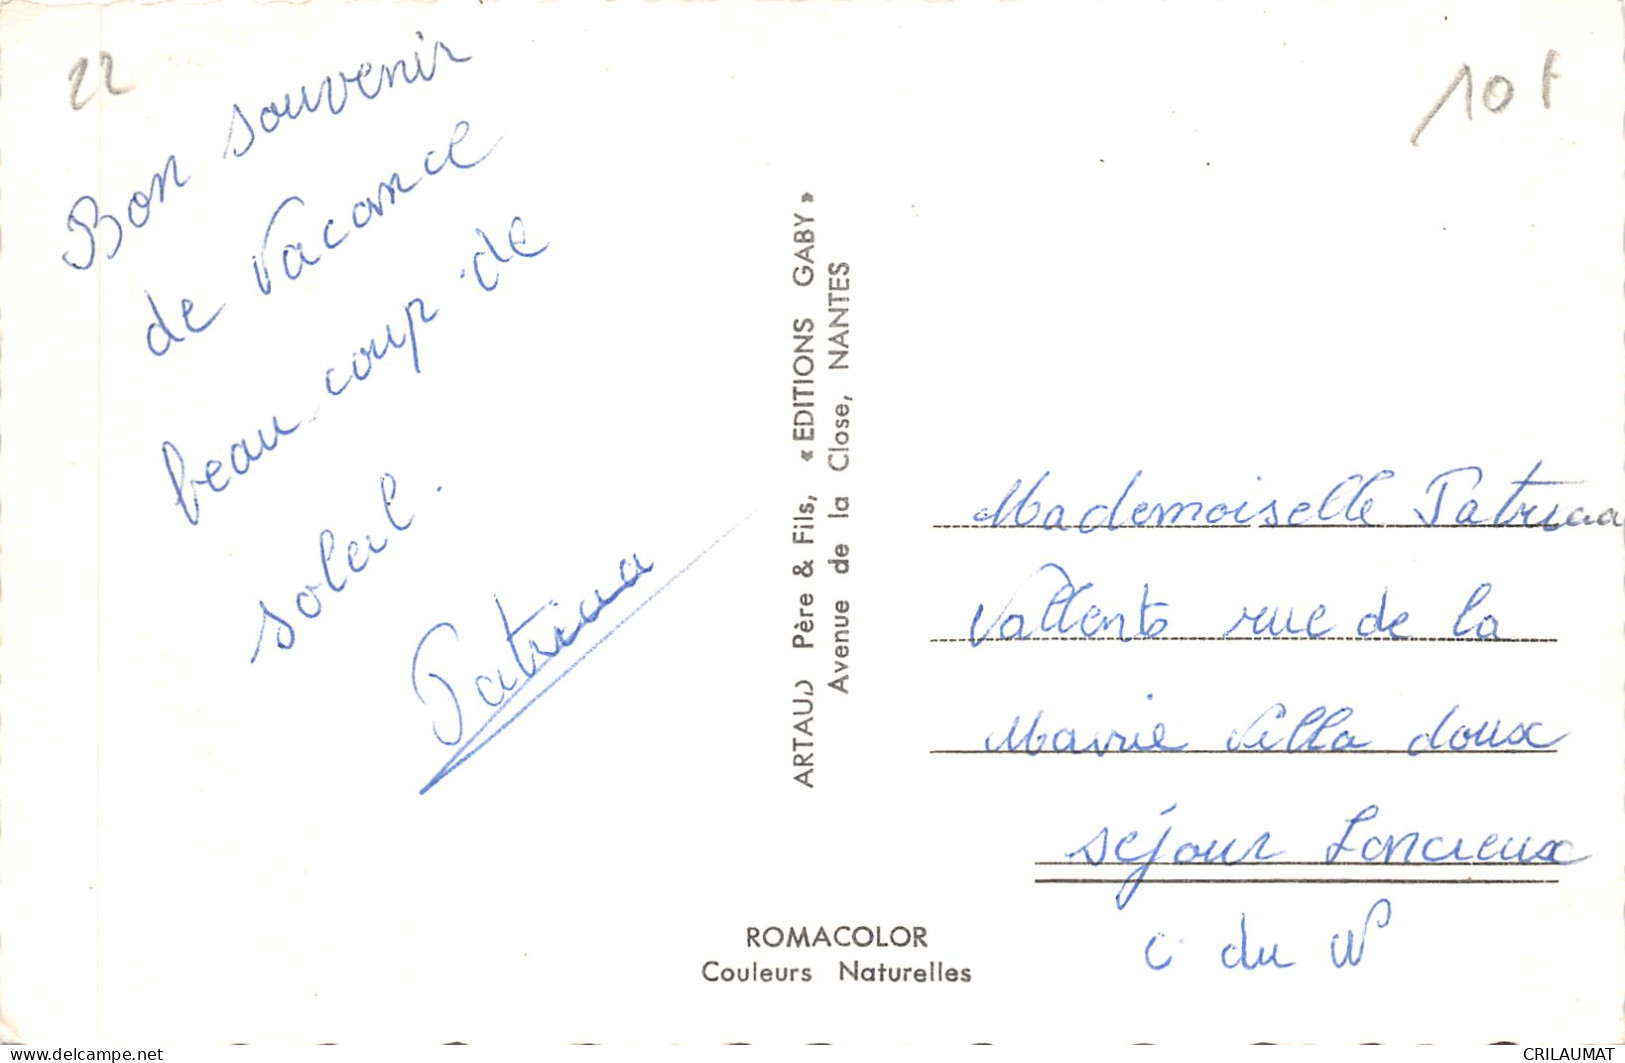 22
Bon souvenir
de Vacance
beau coup de
soleil.
Patricia
10 f
ARTAUD Père & Fils, « EDITIONS GABY »
Avenue de la Close, NANTES
Mademoiselle Patricia
rue de la
Mairie Villa doux
séjour Lancieux
C du N
ROMACOLOR
Couleurs Naturelles
delcampe.net
CRILAUMAT